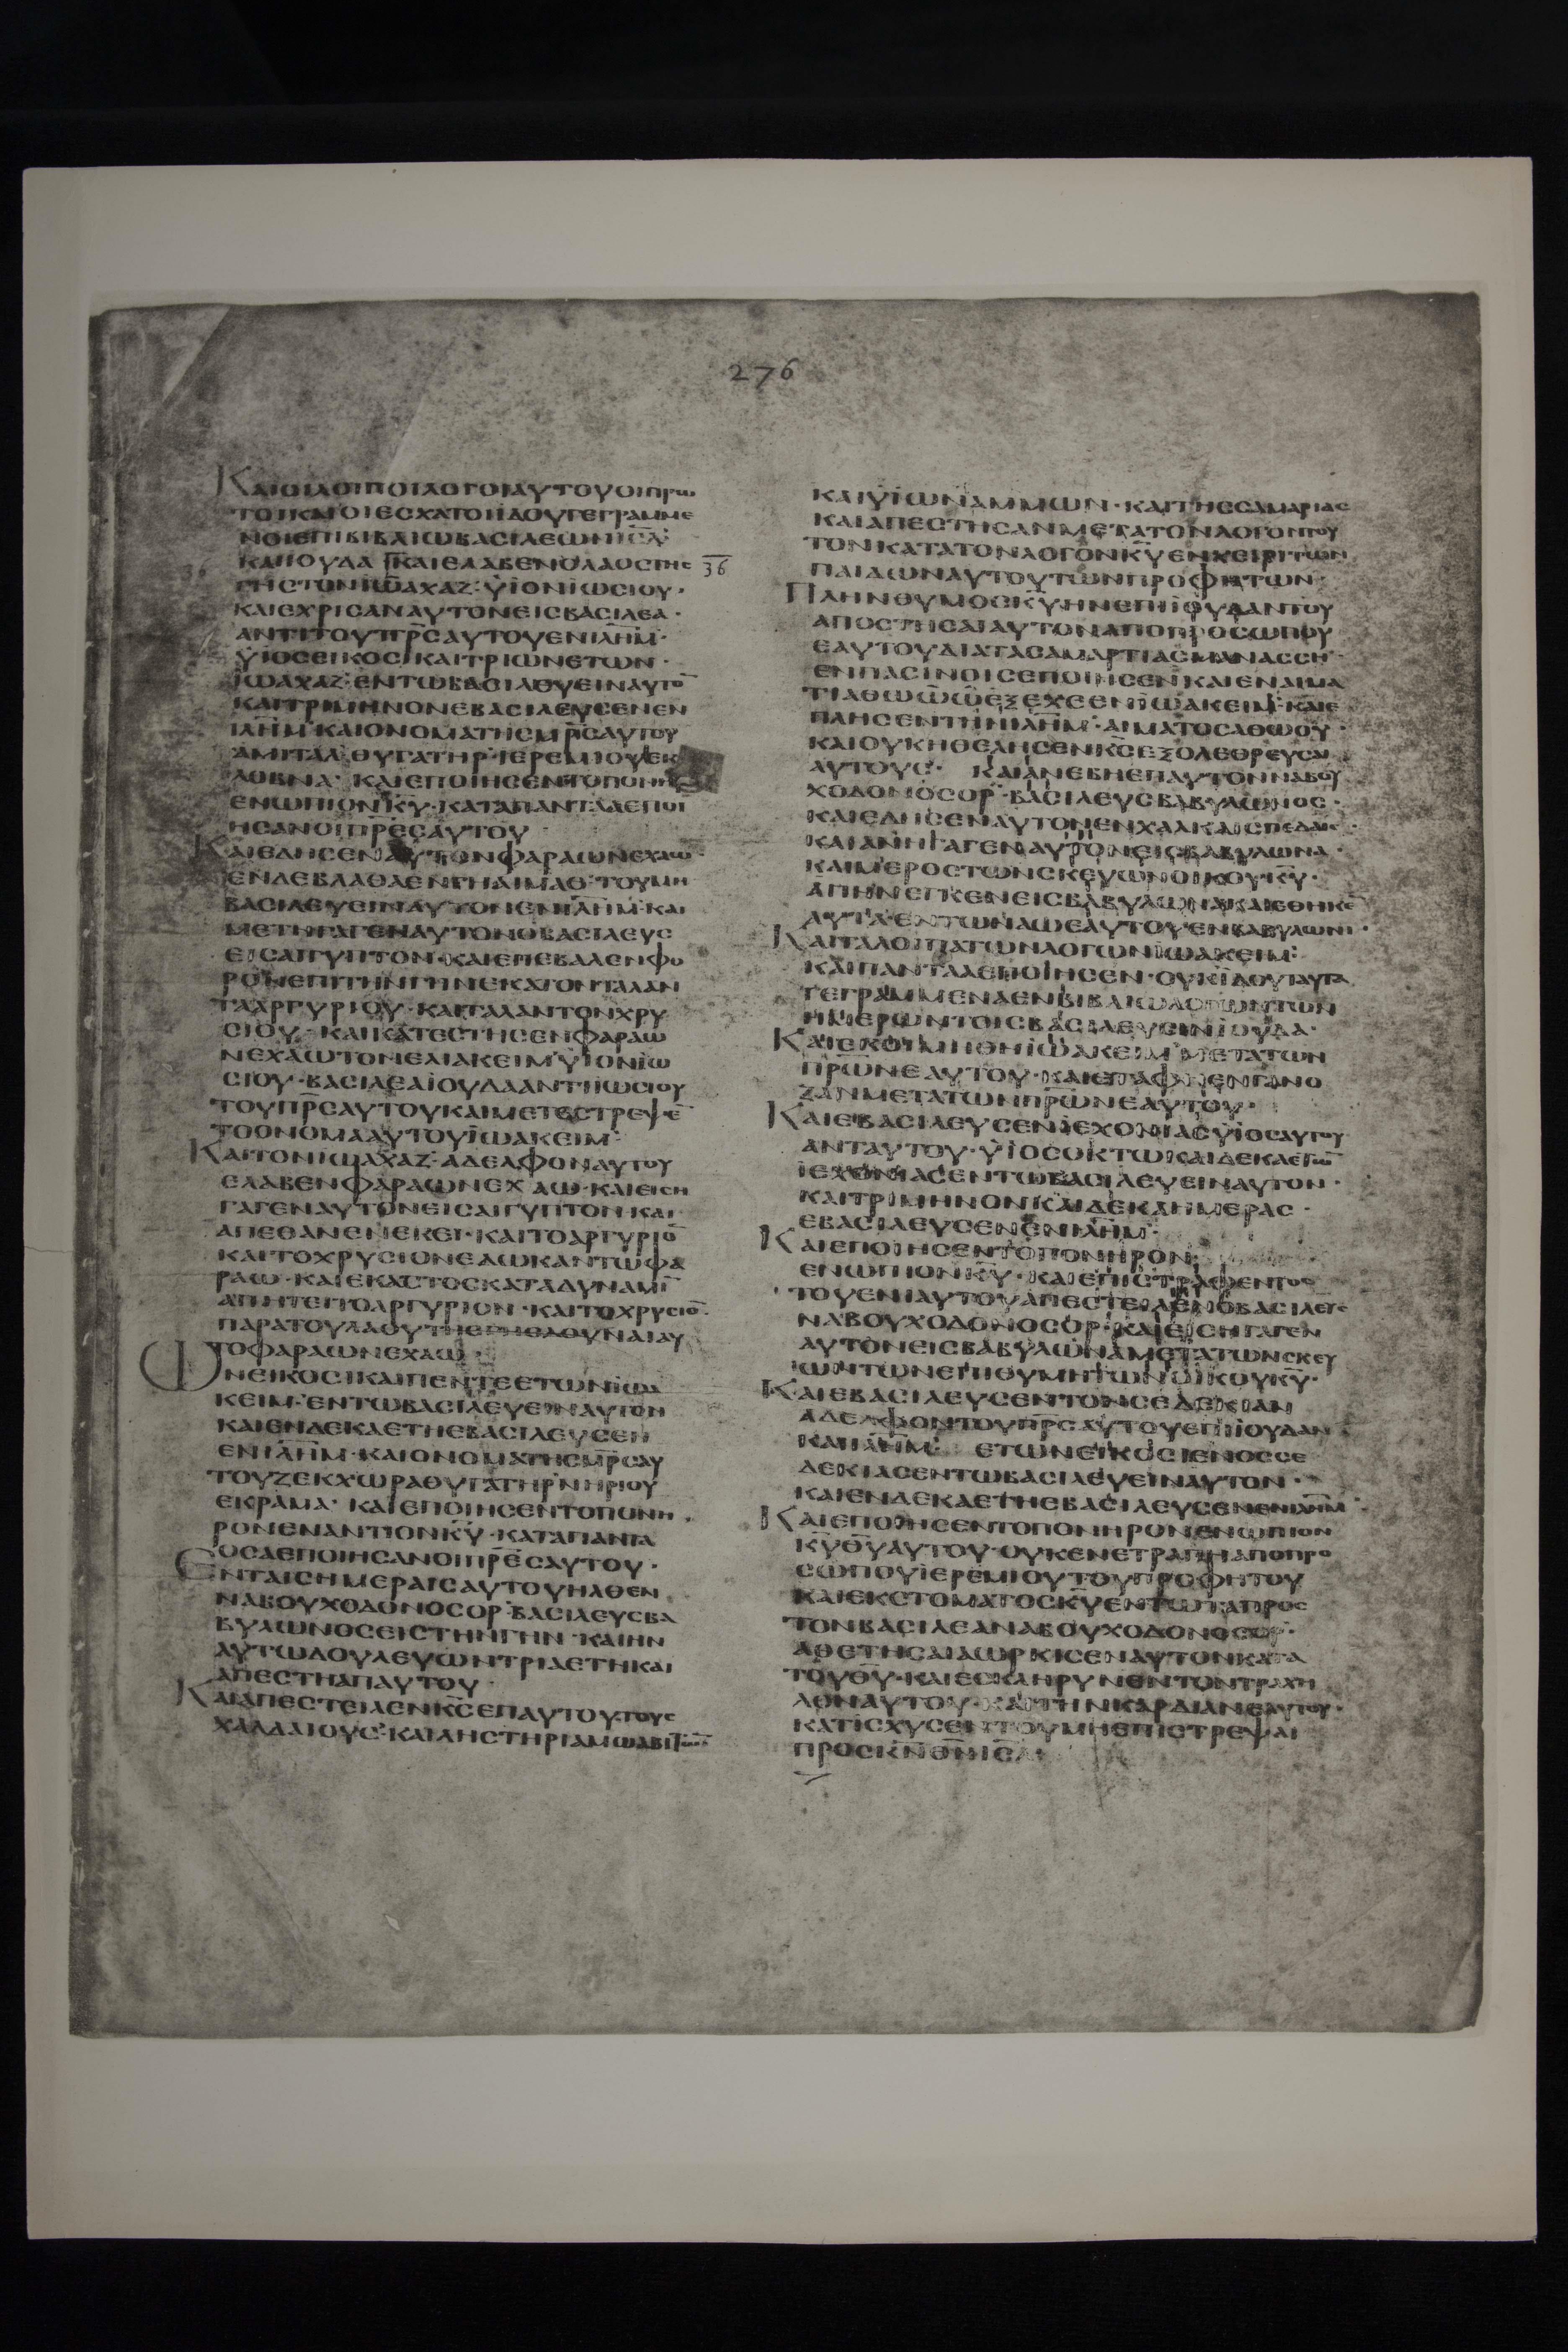 276
ΚΑΙΟΙΛΟΙΠΟΙΛΟΓΟΙΑΥΤΟΥΟΙΠΡΩ
ΤΟΙΚΑΙΟΙΕΣΧΑΤΟΙΙΔΟΥΓΕΓΡΑΜΜΕ
ΝΟΙΕΠΙΒΙΒΛΙΩΒΑΣΙΛΕΩΝΙΣΛ
ΚΑΙΙΟΥΔΑ ΚΑΙΕΛΑΒΕΝΟΛΑΟΣΤΗΣ 36
ΓΗΣΤΟΝΙΩΑΧΑΖ·ΥΪΟΝΙΩΣΙΟΥ·
ΚΑΙΕΧΡΙΣΑΝΑΥΤΟΝΕΙΣΒΑΣΙΛΕΑ·
ΑΝΤΙΤΟΥΠΡ̅ΣΑΥΤΟΥΕΝΙΛΗΜ·
ΥΪΟΣΕΙΚΟΣΙΚΑΙΤΡΙΩΝΕΤΩΝ·
ΙΩΑΧΑΖ·ΕΝΤΩΒΑΣΙΛΕΥΕΙΝΑΥΤΟ̅
ΚΑΙΤΡΙΜΗΝΟΝΕΒΑΣΙΛΕΥΣΕΝΕΝ
ΙΛΗΜ·ΚΑΙΟΝΟΜΑΤΗΣΜΡ̅ΣΑΥΤΟΥ
ΑΜΙΤΑΛ·ΘΥΓΑΤΗΡ·ΙΕΡΕΜΙΟΥΕΚ
ΛΟΒΝΑ· ΚΑΙΕΠΟΙΗΣΕΝΤΟΠΟΝΗ
ΕΝΩΠΙΟΝΚ̅Υ·ΚΑΤΑΠΑΝΤΑΑΕΠΟΙ
ΗΣΑΝΟΙΠΡ̅ΕΣΑΥΤΟΥ
ΚΑΙΕΔΗΣΕΝΑΥΤΟΝΦΑΡΑΩΝΕΧΑΩ·
ΕΝΔΕΒΛΑΘΑΕΝΓΗΑΙΜΑΘ·ΤΟΥΜΗ
ΒΑΣΙΛΕΥΕΙΝΑΥΤΟΝΕΝΙΛΗΜ·ΚΑΙ
ΜΕΤΗΓΑΓΕΝΑΥΤΟΝΟΒΑΣΙΛΕΥΣ
ΕΙΣΑΙΓΥΠΤΟΝ·ΚΑΙΕΠΕΒΑΛΕΝΦΟ
ΡΟΝΕΠΙΤΗΝΓΗΝΕΚΑΤΟΝΤΑΛΑΝ
ΤΑΑΡΓΥΡΙΟΥ·ΚΑΙΤΑΛΑΝΤΟΝΧΡΥ
ΣΙΟΥ· ΚΑΙΚΑΤΕΣΤΗΣΕΝΦΑΡΑΩ
ΝΕΧΑΩΤΟΝΕΛΙΑΚΕΙΜΥΪΟΝΙΩ
ΣΙΟΥ·ΒΑΣΙΛΕΑΙΟΥΔΑΑΝΤΙΙΩΣΙΟΥ
ΤΟΥΠΡ̅ΣΑΥΤΟΥΚΑΙΜΕΤΕΣΤΡΕΨΕ̅
ΤΟΟΝΟΜΑΑΥΤΟΥΙΩΑΚΕΙΜ·
ΚΑΙΤΟΝΙΩΑΧΑΖ·ΑΔΕΛΦΟΝΑΥΤΟΥ
ΕΛΑΒΕΝΦΑΡΑΩΝΕΧΑΩ·ΚΑΙΕΙΣΗ
ΓΑΓΕΝΑΥΤΟΝΕΙΣΑΙΓΥΠΤΟΝ·ΚΑΙ
ΑΠΕΘΑΝΕΝΕΚΕΙ·ΚΑΙΤΟΑΡΓΥΡΙΟ̅
ΚΑΙΤΟΧΡΥΣΙΟΝΕΔΩΚΑΝΤΩΦΑ
ΡΑΩ·ΚΑΙΕΚΑΣΤΟΣΚΑΤΑΔΥΝΑΜΙ̅
ΑΠΗΤΕΙΤΟΑΡΓΥΡΙΟΝ·ΚΑΙΤΟΧΡΥΣΙΟ̅
ΠΑΡΑΤΟΥΛΑΟΥΤΗΣΓΗΣΔΟΥΝΑΙΑΥ
ΤΟΦΑΡΑΩΝΕΧΑΩ·
ΩΝΕΙΚΟΣΙΚΑΙΠΕΝΤΕΕΤΩΝΙΩΑ
ΚΕΙΜ·ΕΝΤΩΒΑΣΙΛΕΥΕΙΝΑΥΤΟΝ
ΚΑΙΕΝΔΕΚΑΕΤΗΕΒΑΣΙΛΕΥΣΕΝ
ΕΝΙΛΗΜ·ΚΑΙΟΝΟΜΑΤΗΣΜΡ̅ΣΑΥ
ΤΟΥΖΕΚΧΩΡΑΘΥΓΑΤΗΡΝΗΡΙΟΥ
ΕΚΡΑΜΑ· ΚΑΙΕΠΟΙΗΣΕΝΤΟΠΟΝΗ
ΡΟΝΕΝΑΝΤΙΟΝΚ̅Υ·ΚΑΤΑΠΑΝΤΑ
ΟΣΑΕΠΟΙΗΣΑΝΟΙΠΡ̅ΕΣΑΥΤΟΥ·
ΕΝΤΑΙΣΗΜΕΡΑΙΣΑΥΤΟΥΗΛΘΕΝ
ΝΑΒΟΥΧΟΔΟΝΟΣΟΡ·ΒΑΣΙΛΕΥΣΒΑ
ΒΥΛΩΝΟΣΕΙΣΤΗΝΓΗΝ·ΚΑΙΗΝ
ΑΥΤΩΔΟΥΛΕΥΩΝΤΡΙΑΕΤΗΚΑΙ
ΑΠΕΣΤΗΑΠΑΥΤΟΥ·
ΚΑΙΑΠΕΣΤΕΙΛΕΝΚ̅ΣΕΠΑΥΤΟΥΣΤΟΥΣ
ΧΑΛΔΑΙΟΥΣ·ΚΑΙΛΗΣΤΗΡΙΑΜΩΑΒΙΤΩΝ
ΚΑΙΥΪΩΝΑΜΜΩΝ·ΚΑΙΤΗΣΣΑΜΑΡΙΑΣ
ΚΑΙΑΠΕΣΤΗΣΑΝΜΕΤΑΤΟΝΛΟΓΟΝΤΟΥ
ΤΟΝΚΑΤΑΤΟΝΛΟΓΟΝΚ̅ΥΕΝΧΕΙΡΙΤΩΝ
ΠΑΙΔΩΝΑΥΤΟΥΤΩΝΠΡΟΦΗΤΩΝ·
ΠΛΗΝΘΥΜΟΣΚ̅ΥΗΝΕΠΙΙΟΥΔΑΝΤΟΥ
ΑΠΟΣΤΗΣΑΙΑΥΤΟΝΑΠΟΠΡΟΣΩΠΟΥ
ΕΑΥΤΟΥΔΙΑΤΑΣΑΜΑΡΤΙΑΣΜΑΝΑΣΣΗ·
ΕΝΠΑΣΙΝΟΙΣΕΠΟΙΗΣΕΝΚΑΙΕΝΑΙΜΑ
ΤΙΑΘΩΩΩΕΞΕΧΕΕΝΙΩΑΚΕΙΜ·ΚΑΙΕ
ΠΛΗΣΕΝΤΗΝΙΛΗΜ·ΑΙΜΑΤΟΣΑΘΩΟΥ·
ΚΑΙΟΥΚΗΘΕΛΗΣΕΝΚ̅ΣΕΞΟΛΕΘΡΕΥΣΑΙ
ΑΥΤΟΥΣ· ΚΑΙΑΝΕΒΗΕΠΑΥΤΟΝΝΑΒΟΥ
ΧΟΔΟΝΟΣΟΡ·ΒΑΣΙΛΕΥΣΒΑΒΥΛΩΝΟΣ·
ΚΑΙΕΔΗΣΕΝΑΥΤΟΝΕΝΧΑΛΚΑΙΣΠΕΔΑΙΣ·
ΚΑΙΑΝΗΓΑΓΕΝΑΥΤΟΝΕΙΣΒΑΒΥΛΩΝΑ·
ΚΑΙΜΕΡΟΣΤΩΝΣΚΕΥΩΝΟΙΚΟΥΚ̅Υ·
ΑΠΗΝΕΓΚΕΝΕΙΣΒΑΒΥΛΩΝΑΚΑΙΕΘΗΚΕ̅
ΑΥΤΑ·ΕΝΤΩΝΑΩΕΑΥΤΟΥΕΝΒΑΒΥΛΩΝΙ·
ΚΑΙΤΑΛΟΙΠΑΤΩΝΛΟΓΩΝΙΩΑΚΕΙΜ·
ΚΑΙΠΑΝΤΑΑΕΠΟΙΗΣΕΝ·ΟΥΚΙΔΟΥΤΑΥΤΑ
ΓΕΓΡΑΜΜΕΝΑΕΝΒΙΒΛΙΩΛΟΓΩΝΤΩΝ
ΗΜΕΡΩΝΤΟΙΣΒΑΣΙΛΕΥΣΙΝΙΟΥΔΑ·
ΚΑΙΕΚΟΙΜΗΘΗΙΩΑΚΕΙΜ·ΜΕΤΑΤΩΝ
ΠΡ̅ΩΝΕΑΥΤΟΥ·ΚΑΙΕΤΑΦΗΕΝΓΑΝΟ
ΖΑΝΜΕΤΑΤΩΝΠΡ̅ΩΝΕΑΥΤΟΥ·
ΚΑΙΕΒΑΣΙΛΕΥΣΕΝΙΕΧΟΝΙΑΣΥΪΟΣΑΥΤΟΥ
ΑΝΤΑΥΤΟΥ·ΥΪΟΣΟΚΤΩΚΑΙΔΕΚΑΕΤΩ̅
ΙΕΧΟΝΙΑΣΕΝΤΩΒΑΣΙΛΕΥΕΙΝΑΥΤΟΝ·
ΚΑΙΤΡΙΜΗΝΟΝΚΑΙΔΕΚΑΗΜΕΡΑΣ·
ΕΒΑΣΙΛΕΥΣΕΝΕΝΙΛΗΜ·
ΚΑΙΕΠΟΙΗΣΕΝΤΟΠΟΝΗΡΟΝ
ΕΝΩΠΙΟΝΚ̅Υ·ΚΑΙΕΠΙΣΤΡΑΦΕΝΤΟΣ
ΤΟΥΕΝΙΑΥΤΟΥΑΠΕΣΤΕΙΛΕΝΟΒΑΣΙΛΕΥΣ
ΝΑΒΟΥΧΟΔΟΝΟΣΟΡ·ΚΑΙΕΙΣΗΓΑΓΕΝ
ΑΥΤΟΝΕΙΣΒΑΒΥΛΩΝΑΜΕΤΑΤΩΝΣΚΕΥ
ΩΝΤΩΝΕΠΙΘΥΜΗΤΩΝΟΙΚΟΥΚ̅Υ·
ΚΑΙΕΒΑΣΙΛΕΥΣΕΝΤΟΝΣΕΔΕΚΙΑΝ
ΑΔΕΛΦΟΝΤΟΥΠΡ̅ΣΑΥΤΟΥΕΠΙΙΟΥΔΑΝ
ΚΑΙΙΛΗΜ· ΕΤΩΝΕΙΚΟΣΙΕΝΟΣΣΕ
ΔΕΚΙΑΣΕΝΤΩΒΑΣΙΛΕΥΕΙΝΑΥΤΟΝ·
ΚΑΙΕΝΔΕΚΑΕΤΗΕΒΑΣΙΛΕΥΣΕΝΕΝΙΛΗΜ·
ΚΑΙΕΠΟΙΗΣΕΝΤΟΠΟΝΗΡΟΝΕΝΩΠΙΟΝ
Κ̅ΥΘ̅ΥΑΥΤΟΥ·ΟΥΚΕΝΕΤΡΑΠΗΑΠΟΠΡΟ
ΣΩΠΟΥΙΕΡΕΜΙΟΥΤΟΥΠΡΟΦΗΤΟΥ
ΚΑΙΕΚΣΤΟΜΑΤΟΣΚ̅ΥΕΝΤΩΤΑΠΡΟΣ
ΤΟΝΒΑΣΙΛΕΑΝΑΒΟΥΧΟΔΟΝΟΣΟΡ·
ΑΘΕΤΗΣΑΙΑΩΡΚΙΣΕΝΑΥΤΟΝΚΑΤΑ
ΤΟΥΘ̅Υ·ΚΑΙΕΣΚΛΗΡΥΝΕΝΤΟΝΤΡΑΧΗ
ΛΟΝΑΥΤΟΥ·ΚΑΙΤΗΝΚΑΡΔΙΑΝΕΑΥΤΟΥ·
ΚΑΤΙΣΧΥΣΕΝΤΟΥΜΗΕΠΙΣΤΡΕΨΑΙ
ΠΡΟΣΚ̅ΝΘ̅ΝΙΣΛ·